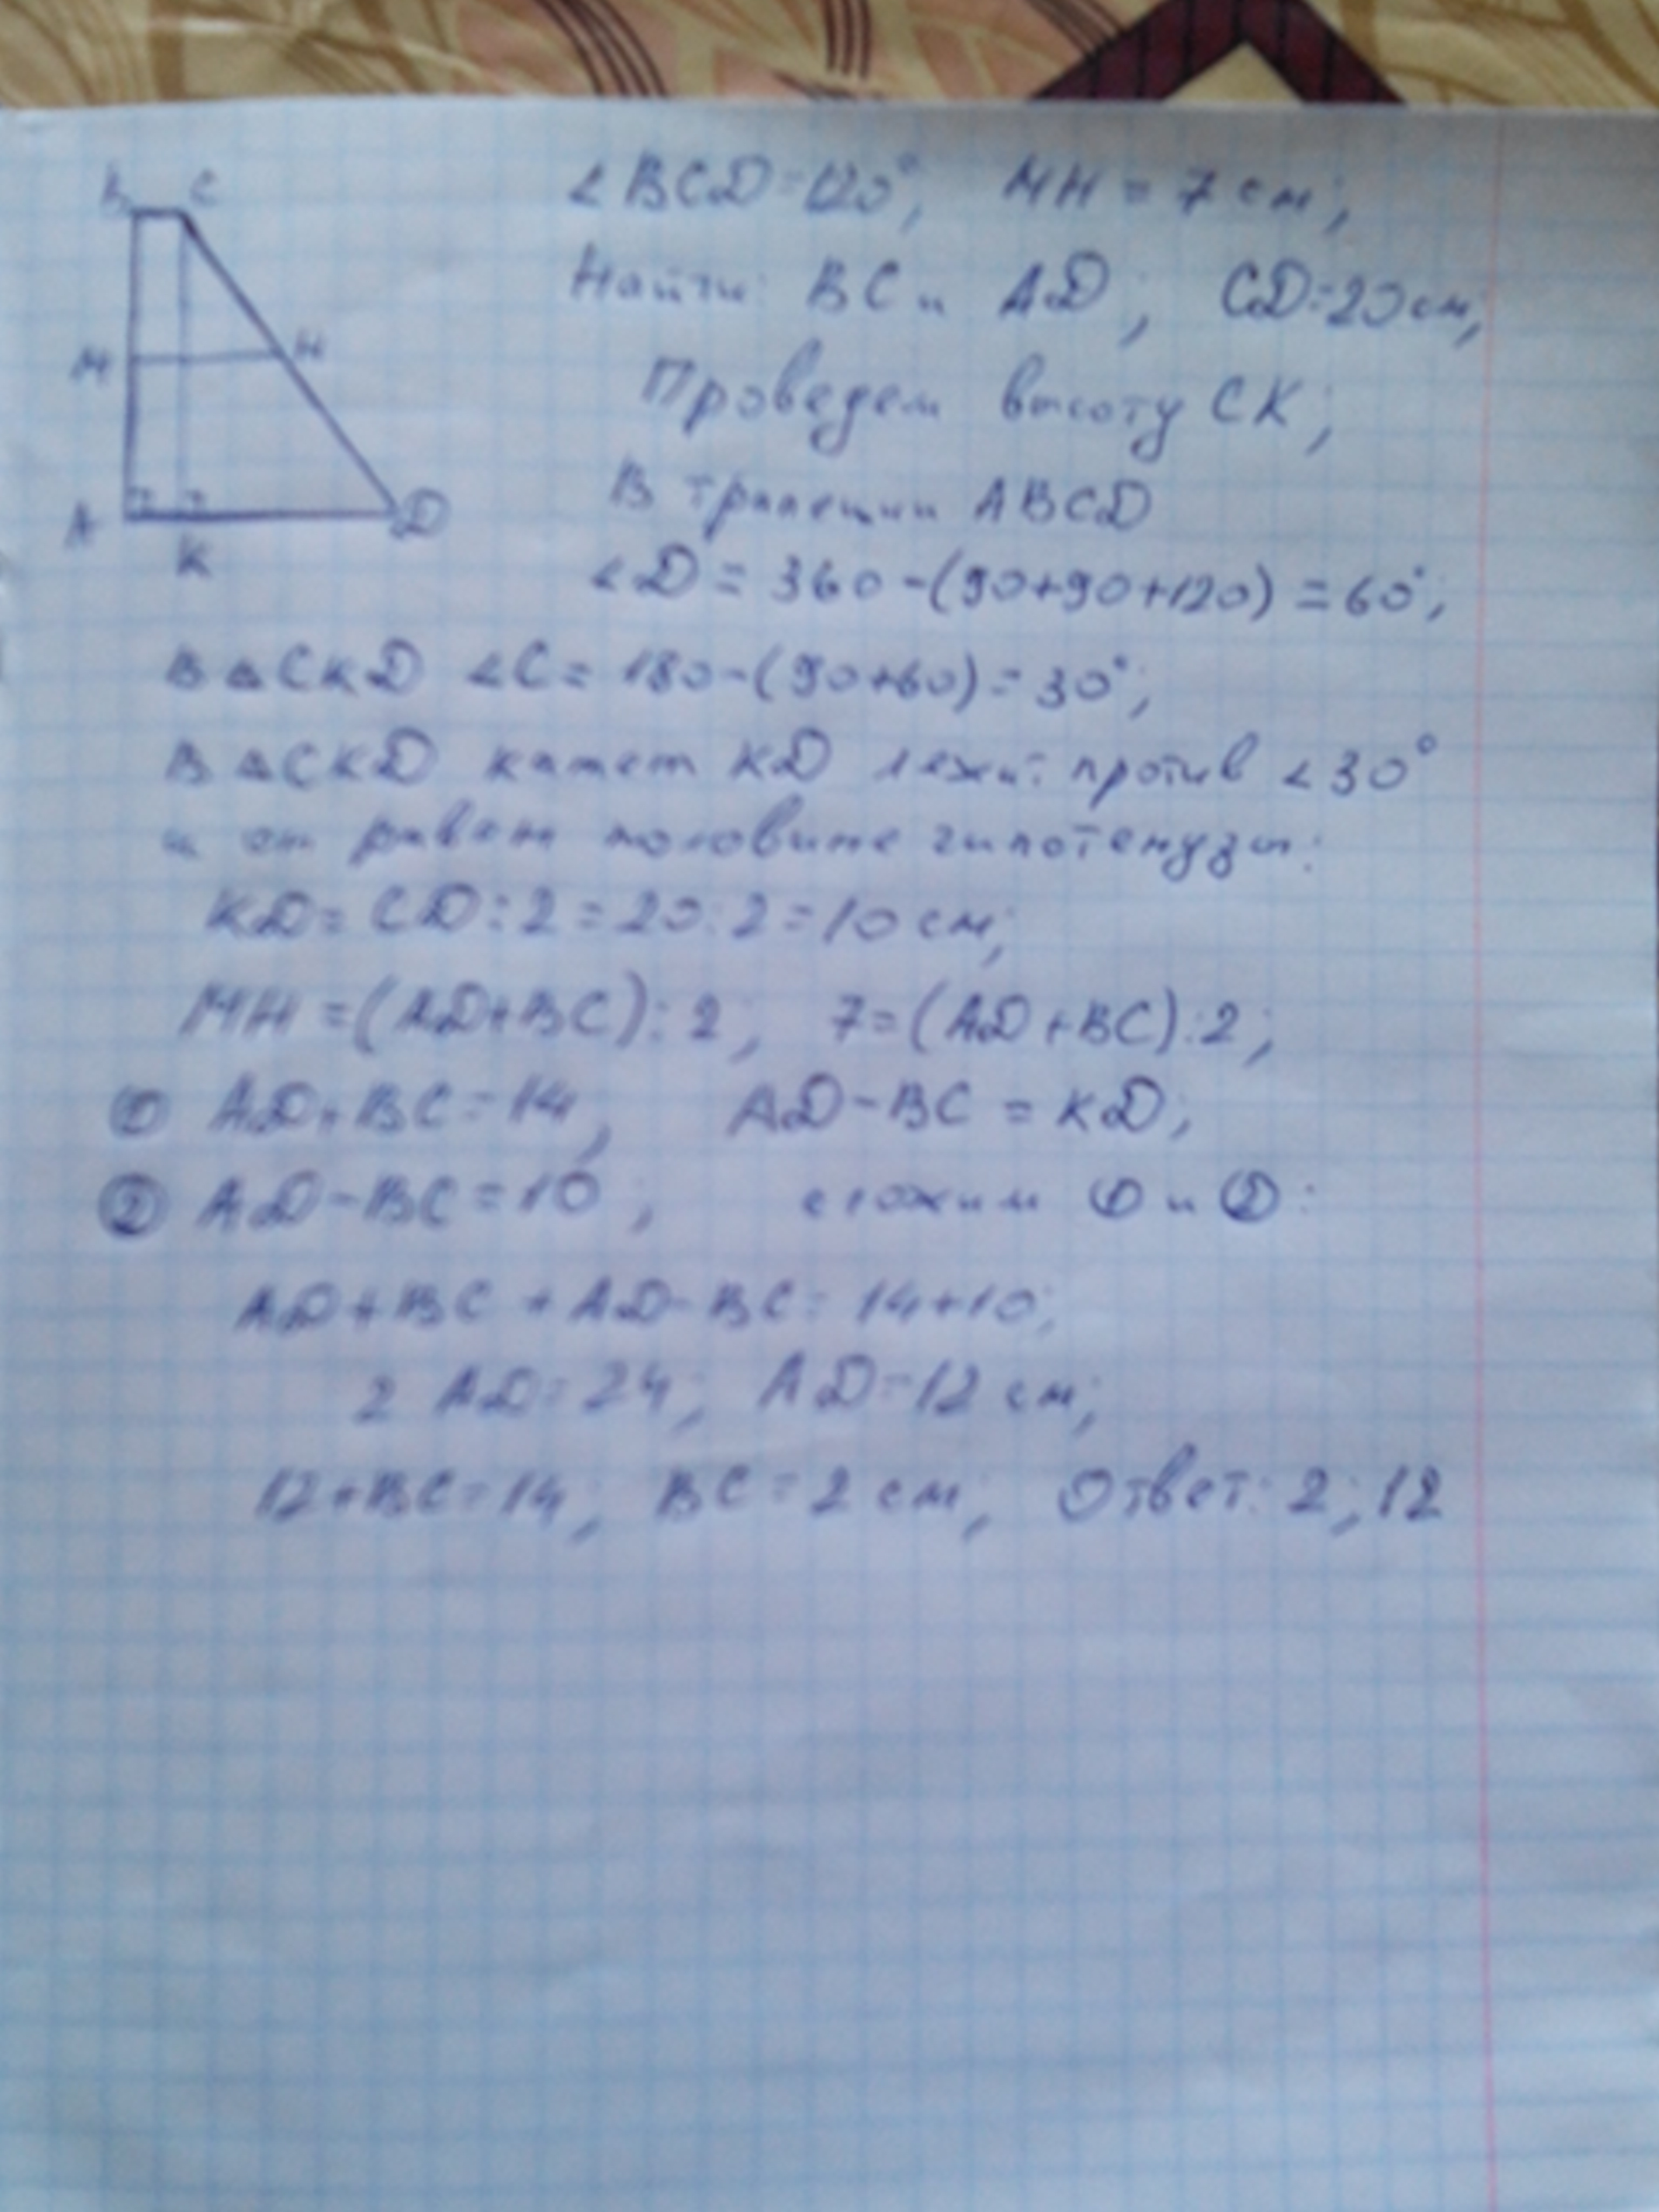 B C
M H
A K D
∠BCD=120°, MH = 7 см;
Найти: BC и AD; CD=20 см;
Проведем высоту CK;
В трапеции ABCD
∠D = 360-(90+90+120) = 60°;
В △CKD ∠C = 180-(90+60) = 30°;
В △CKD катет KD лежит против ∠30°
и он равен половине гипотенузы:
KD = CD:2 = 20:2 = 10 см;
MH = (AD+BC):2; 7 = (AD+BC):2;
① AD+BC = 14; AD-BC = KD;
② AD-BC = 10; сложим ① и ②:
AD+BC + AD-BC = 14+10;
2 AD = 24; AD = 12 см;
12+BC = 14; BC = 2 см; Ответ: 2; 12